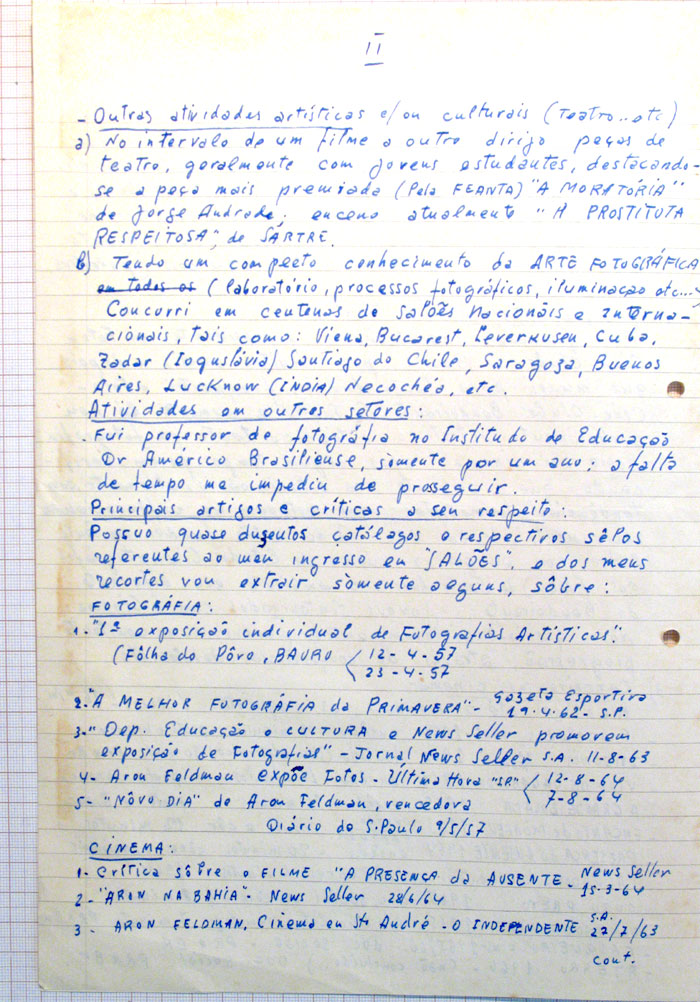 II
- Outras atividades artísticas e/ou culturais (Teatro.. etc)
a) No intervalo de um filme a outro dirijo peças de
teatro, geralmente com jovens estudantes, destacando-
se a peça mais premiada (Pela FEANTA) "A MORATÓRIA"
de Jorge Andrade; enceno atualmente "A PROSTITUTA
RESPEITOSA", de SÁRTRE.
b) Tendo um completo conhecimento da ARTE FOTOGRÁFICA
em todos os (laboratório, processos fotográficos, iluminação etc...)
Concorri em centenas de salões Nacionáis e Interna-
cionáis, tais como: Viena, Bucarest, Leverkusen, Cuba,
Zadar (Ioguslávia) Santiago do Chile, Saragoza, Buenos
Aires, Lucknow (ÍNDIA) Necochéa, etc.
Atividades em outros setores:
. Fui professor de fotográfia no Instituto de Educação
Dr Américo Brasiliense, sómente por um ano; a falta
de tempo me impediu de prosseguir.
Principais artigos e críticas a seu respeito:
Possuo quase duzentos catálagos e respectivos sêlos
referentes ao meu ingresso en "SALÕES", e dos meus
recortes vou extrair sòmente alguns, sôbre:
FOTOGRÁFIA:
1.- "1ª exposição individual de Fotografias Artísticas".
(Fôlha do Pôvo, BAURU 12-4-57
23-4-57
2- "A MELHOR FOTOGRÁFIA da PRIMAVERA" - Gazeta Esportiva
19.4.62 - S.P.
3- "Dep. Educação e CULTURA e News Seller promovem
exposição de Fotografias" - Jornal News Seller S.A. 11-8-63
4- Aron Feldman expõe Fotos - Última Hora "SP" 12-8-64
7-8-64
5- "NÔVO DIA" de Aron Feldman, vencedora
Diário de S. Paulo 9/5/57
CINEMA:
1- Crítica sôbre o FILME "A PRESENÇA da AUSENTE - News Seller
15-3-64
2- "ARON NA BAHIA" - News Seller 28/6/64
3- ARON FELDMAN, Cinema en Sto André - O INDEPENDENTE S.A.
27/7/63
cont.